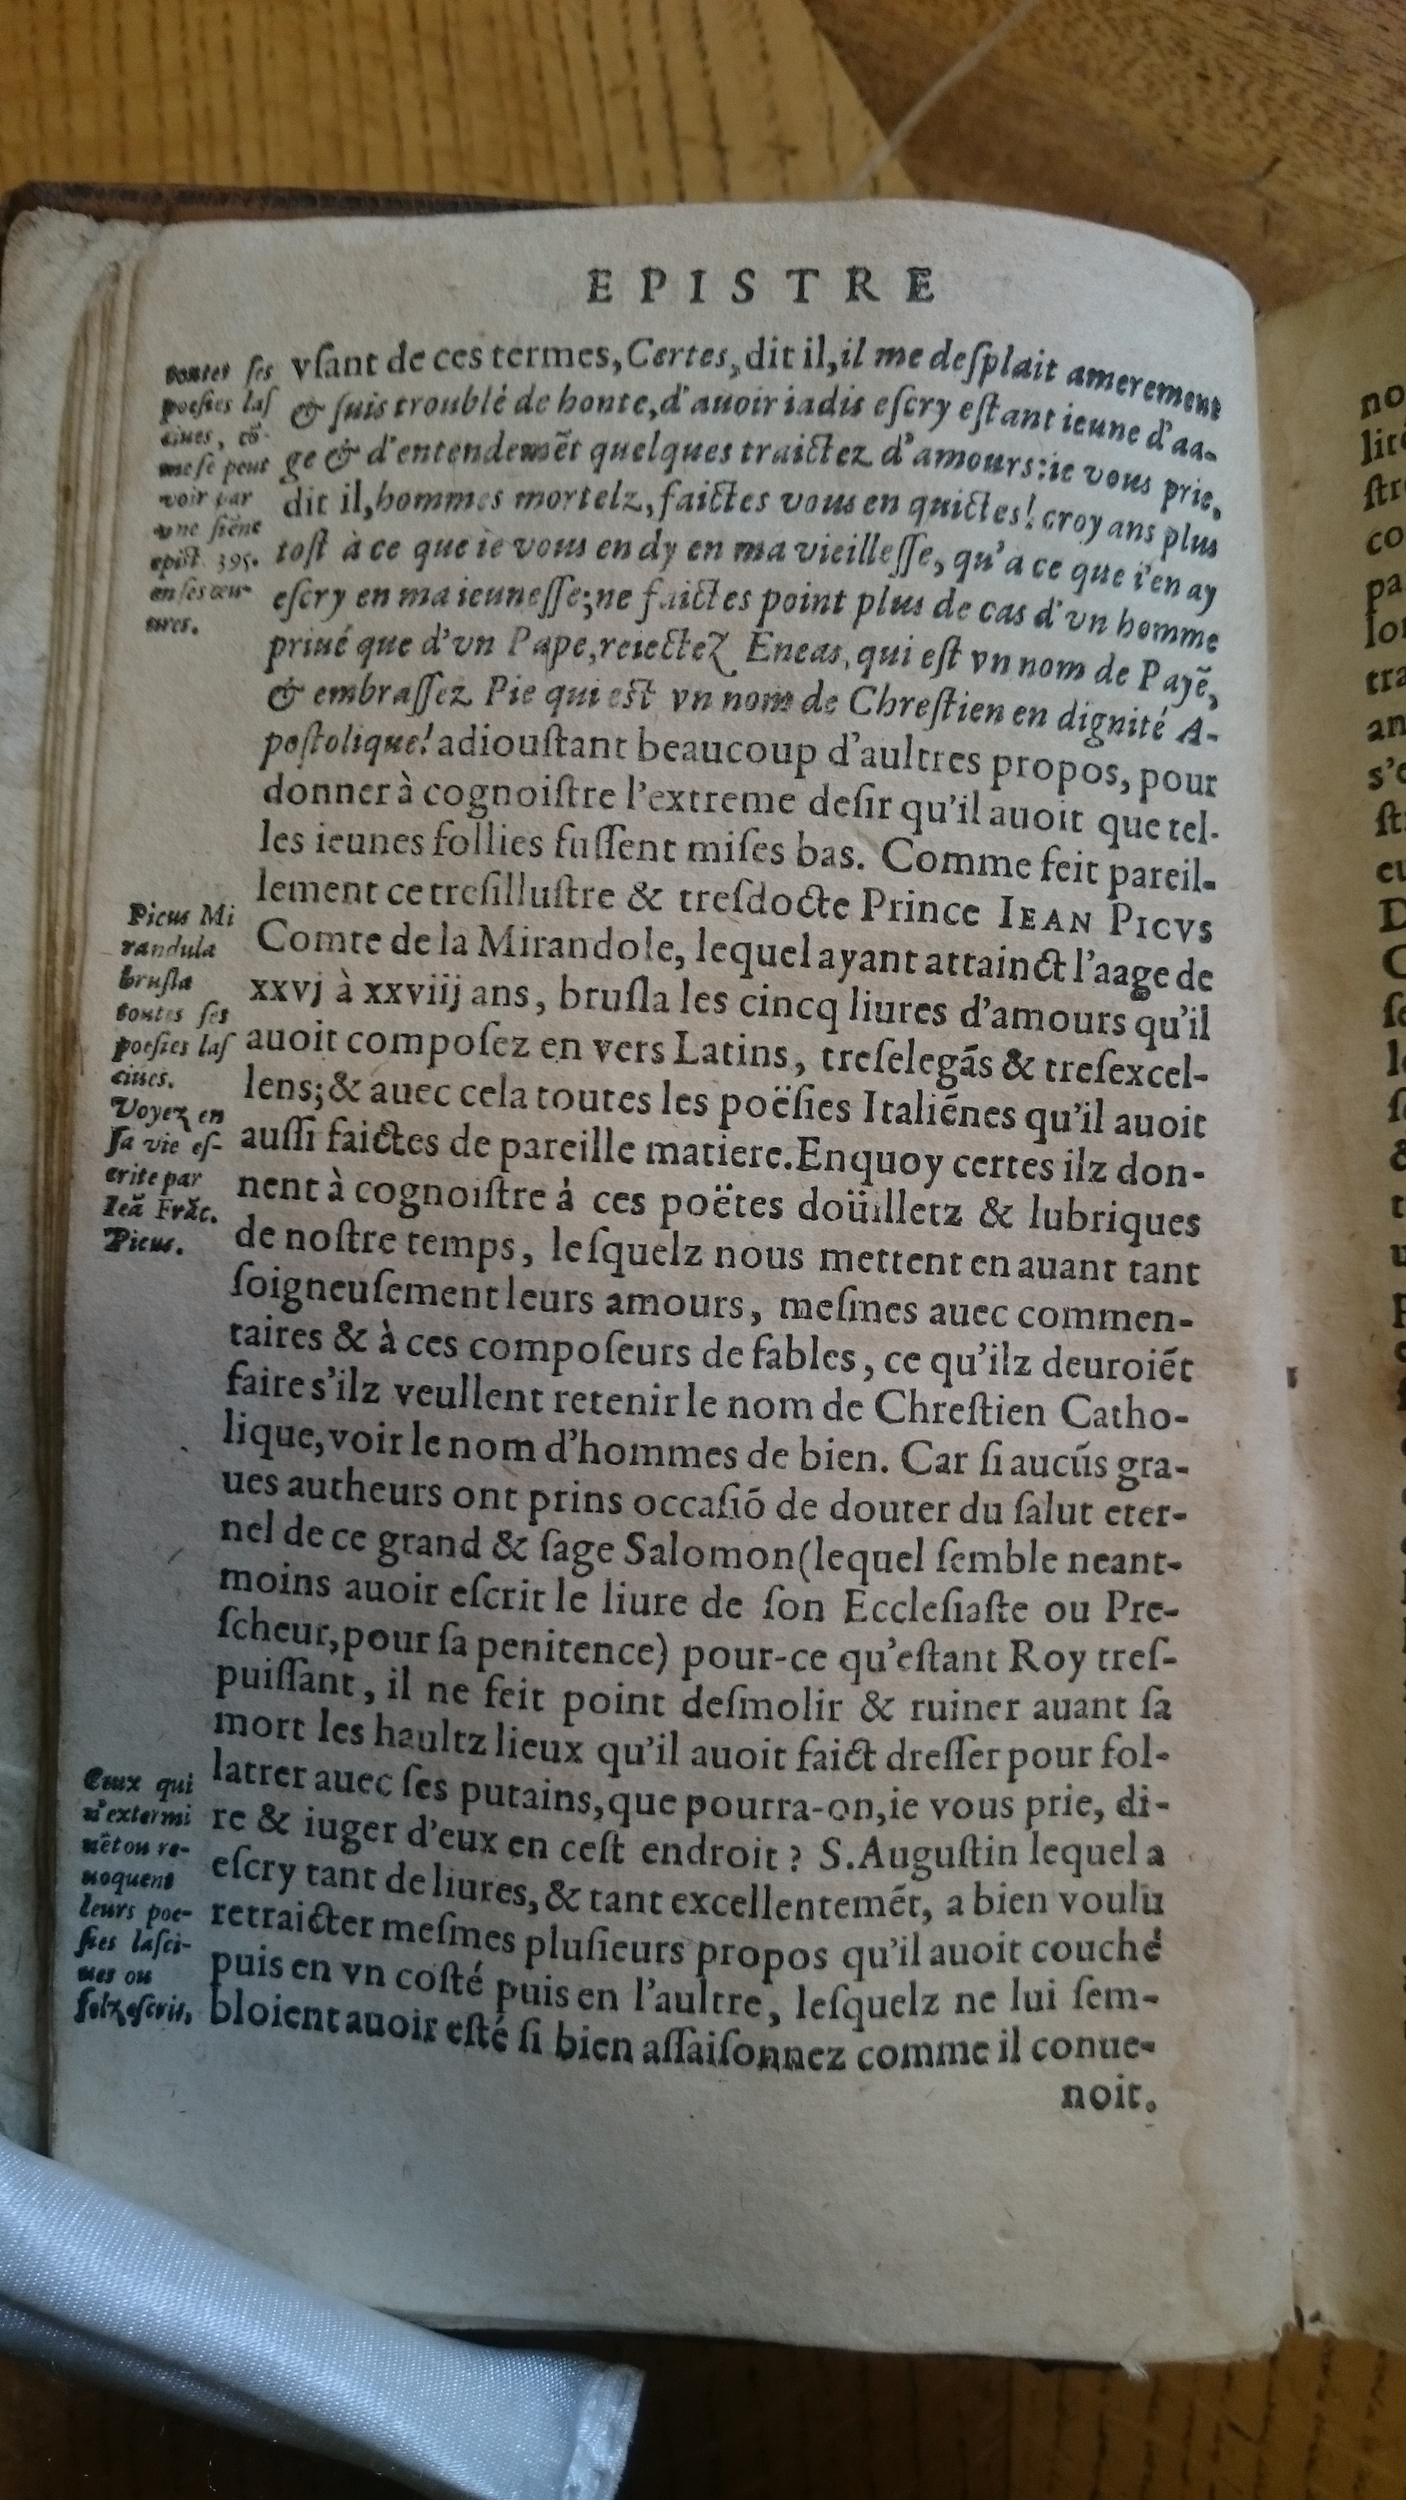 EPISTRE
toutes ſes
poeſies laſ
ciues, cõ-
me ſe peut
voir par
vne ſiẽne
epiſt. 395.
en ſes œu-
ures.
vſant de ces termes, Certes, dit il, il me deſplait amerement
& ſuis troublé de honte, d'auoir iadis eſcry eſtant ieune d'aa-
ge & d'entendemẽt quelques traictez d'amours: ie vous prie,
dit il, hommes mortelz, faictes vous en quictes! croyans plus
toſt à ce que ie vous en dy en ma vieilleſſe, qu'a ce que i'en ay
eſcry en ma ieuneſſe; ne faictes point plus de cas d'vn homme
priué que d'vn Pape, reiectez Eneas, qui eſt vn nom de Payẽ,
& embraſſez Pie qui eſt vn nom de Chreſtien en dignité A-
poſtolique! adiouſtant beaucoup d'aultres propos, pour
donner à cognoiſtre l'extreme deſir qu'il auoit que tel-
les ieunes follies fuſſent miſes bas. Comme feit pareil-
lement ce treſilluſtre & treſdocte Prince IEAN PICVS
Comte de la Mirandole, lequel ayant attainct l'aage de
xxvj à xxviij ans, bruſla les cincq liures d'amours qu'il
auoit compoſez en vers Latins, treſelegãs & treſexcel-
lens; & auec cela toutes les poëſies Italiẽnes qu'il auoit
auſſi faictes de pareille matiere. En quoy certes ilz don-
nent à cognoiſtre á ces poëtes doüilletz & lubriques
de noſtre temps, leſquelz nous mettent en auant tant
ſoigneuſement leurs amours, meſmes auec commen-
taires & à ces compoſeurs de fables, ce qu'ilz deuroiẽt
faire s'ilz veullent retenir le nom de Chreſtien Catho-
lique, voir le nom d'hommes de bien. Car ſi aucũs gra-
ues autheurs ont prins occaſiõ de douter du ſalut eter-
nel de ce grand & ſage Salomon (lequel ſemble neant-
moins auoir eſcrit le liure de ſon Eccleſiaſte ou Pre-
ſcheur, pour ſa penitence) pour-ce qu'eſtant Roy treſ-
puiſſant, il ne feit point deſmolir & ruiner auant ſa
mort les haultz lieux qu'il auoit faict dreſſer pour fol-
latrer auec ſes putains, que pourra-on, ie vous prie, di-
re & iuger d'eux en ceſt endroit ? S. Auguſtin lequel a
eſcry tant de liures, & tant excellentemẽt, a bien voulu
retraicter meſmes pluſieurs propos qu'il auoit couché
puis en vn coſté puis en l'aultre, leſquelz ne lui ſem-
bloient auoir eſté ſi bien aſſaiſonnez comme il conue-
noit.
Picus Mi
randula
bruſla
toutes ſes
poeſies laſ
ciues.
Voyez en
ſa vie eſ-
crite par
Ieã Frãc.
Picus.
Ceux qui
n'extermi
nẽt ou re-
uoquent
leurs poe-
ſies laſci-
ues ou
folz eſcris,